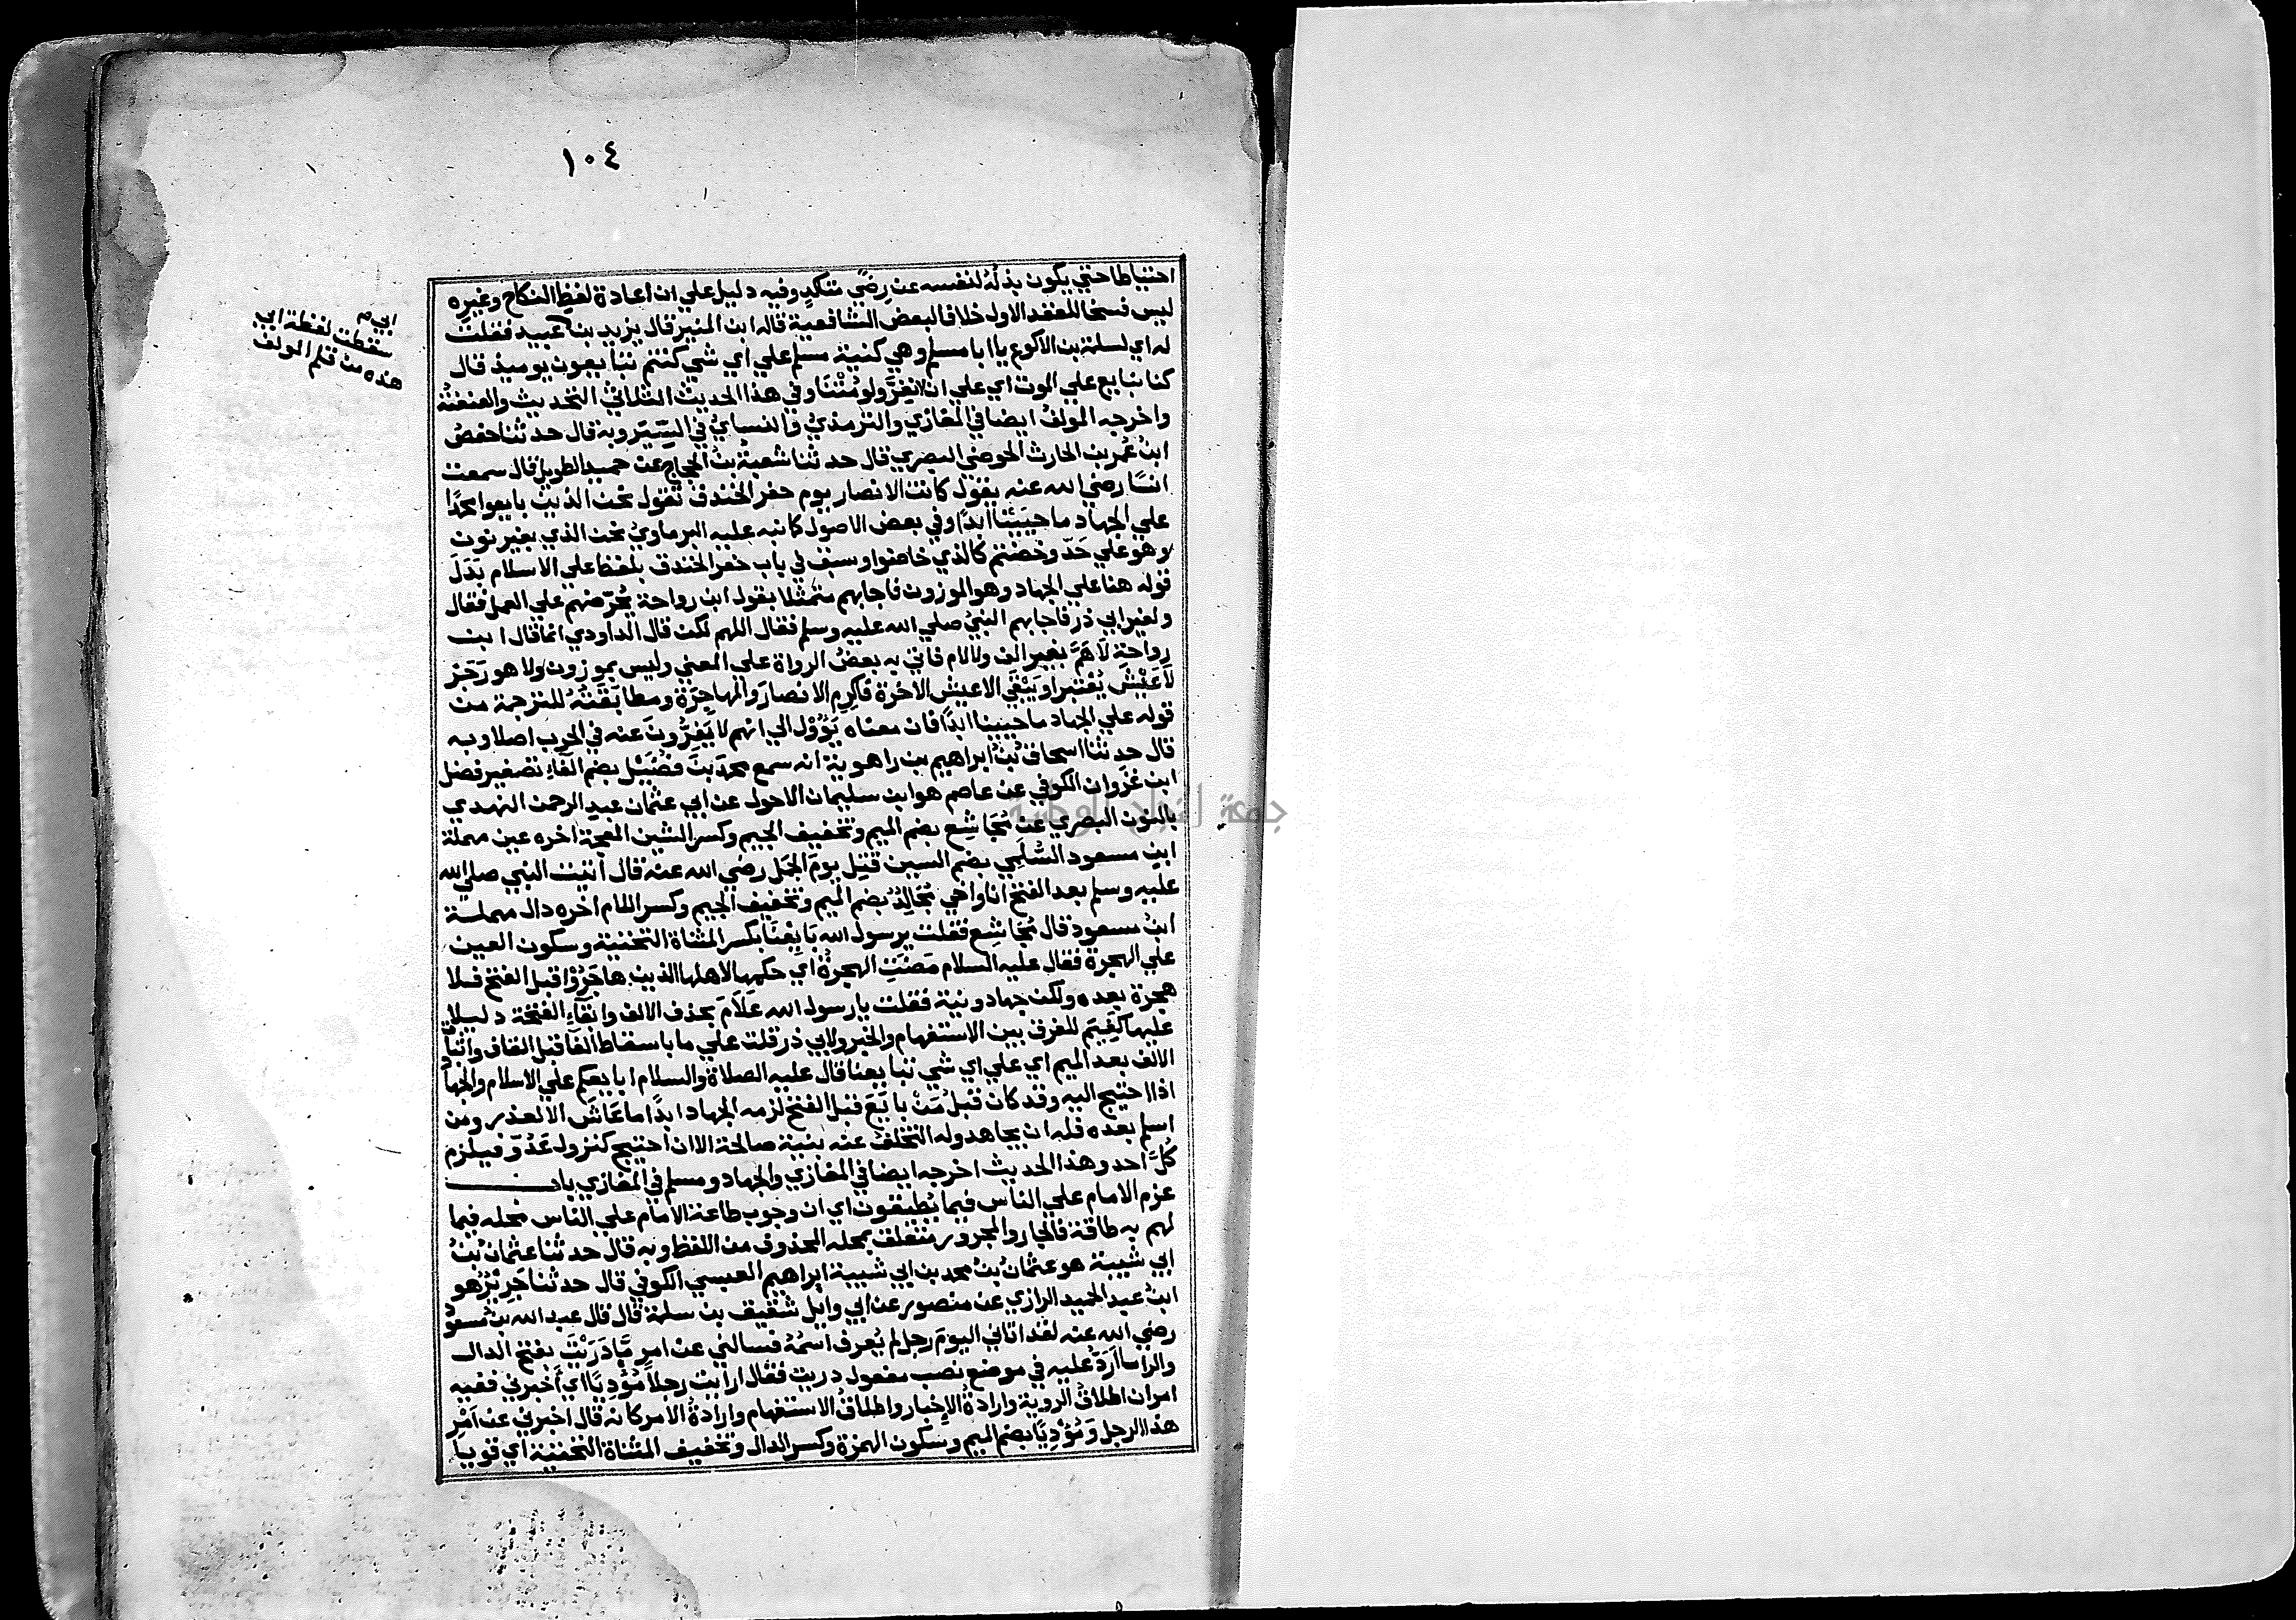 ١٠٤
احتياطا حتي يكون بذله لنفسه عن رضي متكد وفيه دليل علي ان اعادة لفظ النكاح وغيره
ليس فسخا للعقد الاول خلافا لبعض الشافعية قاله ابن المنير قال يزيد بن عبيد فقلت
له اي لسلمة بن الاكوع يا ابا مسلم وهي كنية مسلم علي اي شي كنتم تبايعون يوميذ قال
كنا نبايع علي الموت اي علي ان لا نفر ولو متنا وفي هذا الحديث الثلاثي التحديث والعنعنة
واخرجه المولف ايضا في المغازي والترمذي والنساي في السير وبه قال حدثنا حفص
ابن عمر بن الحارث الحوضي البصري قال حدثنا شعبة بن الحجاج عن حميد الطويل قال سمعت
انسا رضي الله عنه يقول كانت الانصار يوم حفر الخندق تقول نحن الذين بايعوا محمدا
علي الجهاد ما حيينا ابدا وفي بعض الاصول كما نبه عليه البرماوي نحن الذي بغير نون
وهو علي حد وخضتم كالذي خاضوا وسبق في باب حفر الخندق بلفظ علي الاسلام بدل
قوله هنا علي الجهاد وهو الموزون فاجابهم متمثلا بقول ابن رواحة يحرضهم علي العمل فقال
ولغير ابي ذر فاجابهم النبي صلي الله عليه وسلم فقال اللهم لكن قال الداودي انما قال ابن
رواحة لاهم بغير الف ولا لام فاتي به بعض الرواة علي المعني وليس بموزون ولا هو رجز
لا عيش يعتبر او يبقي الا عيش الاخرة فاكرم الانصار والمهاجرة ومطابقته للترجمة من
قوله علي الجهاد ما حيينا ابدا فان معناه يؤول الي انهم لا يفرون عنه في الحرب اصلا وبه
قال حدثنا اسحاق بن ابراهيم بن راهوية انه سمع محمد بن فضيل بضم الفاء تصغير فضل
ابن غزوان الكوفي عن عاصم هو ابن سليمان الاحول عن ابي عثمان عبد الرحمن النهدي
بالنون البصري عن مجاشع بضم الميم وتخفيف الجيم وكسر الشين المعجمة اخره عين مهملة
ابن مسعود السلمي بضم السين قتل يوم الجمل رضي الله عنه قال اتيت النبي صلي الله
عليه وسلم بعد الفتح انا واخي مجالد بضم الميم وتخفيف الجيم وكسر اللام اخره دال مهملة
ابن مسعود قال مجاشع فقلت يرسول الله بايعنا بكسر المثناة التحتية وسكون العين
علي الهجرة فقال عليه السلام مضت الهجرة اي حكمها لاهلها الذين هاجروا قبل الفتح فلا
هجرة بعده ولكن جهاد ونية فقلت يا رسول الله علام بحذف الالف وابقاء الفتحة دليلا
عليها كفيم للفرق بين الاستفهام والخبر ولابي ذر قلت علي ما باسقاط الفا قبل القاف واثبا
الالف بعد الميم اي علي اي شي تبايعنا قال عليه الصلاة والسلام ابايعكم علي الاسلام والجها
اذا احتيج اليه وقد كان قبل من بايع قبل الفتح لزمه الجهاد ابدا ما عاش الا لعذر ومن
اسلم بعده فله ان يجاهد وله التخلف عنه بنية صالحة الا ان احتيج كنزول عدو فيلزم
كل احد وهذا الحديث اخرجه ايضا في المغازي والجهاد ومسلم في المغازي باب
عزم الامام علي الناس فيما يطيقون اي ان وجوب طاعة الامام علي الناس محله فيما
لهم به طاقة فالجار والمجرور متعلق بمحله المحذوف من اللفظ وبه قال حدثنا عثمان بن
ابي شيبة هو عثمان بن محمد بن ابي شيبة ابراهيم العبسي الكوفي قال حدثنا جرير هو
ابن عبد الحميد الرازي عن منصور عن ابي وايل شقيق بن سلمة قال قال عبد الله بن مسعود
رضي الله عنه لقد اتاني اليوم رجل لم يعرف اسمه فسالني عن امر ما دريت بفتح الدال
والرا ما ارد عليه في موضع نصب مفعول دريت فقال ارايت رجلا مؤديا اي اخبرني ففيه
امران اطلاق الروية وارادة الاخبار واطلاق الاستفهام وارادة الامر كانه قال اخبرني عن امر
هذا الرجل ومؤديا بضم الميم وسكون الهمزة وكسر الدال وتخفيف المثناة التحتية اي قويا
ابي م
سقطت لفظة ابي
هذه من قلم المولف
جامعة النجاح الوطنية